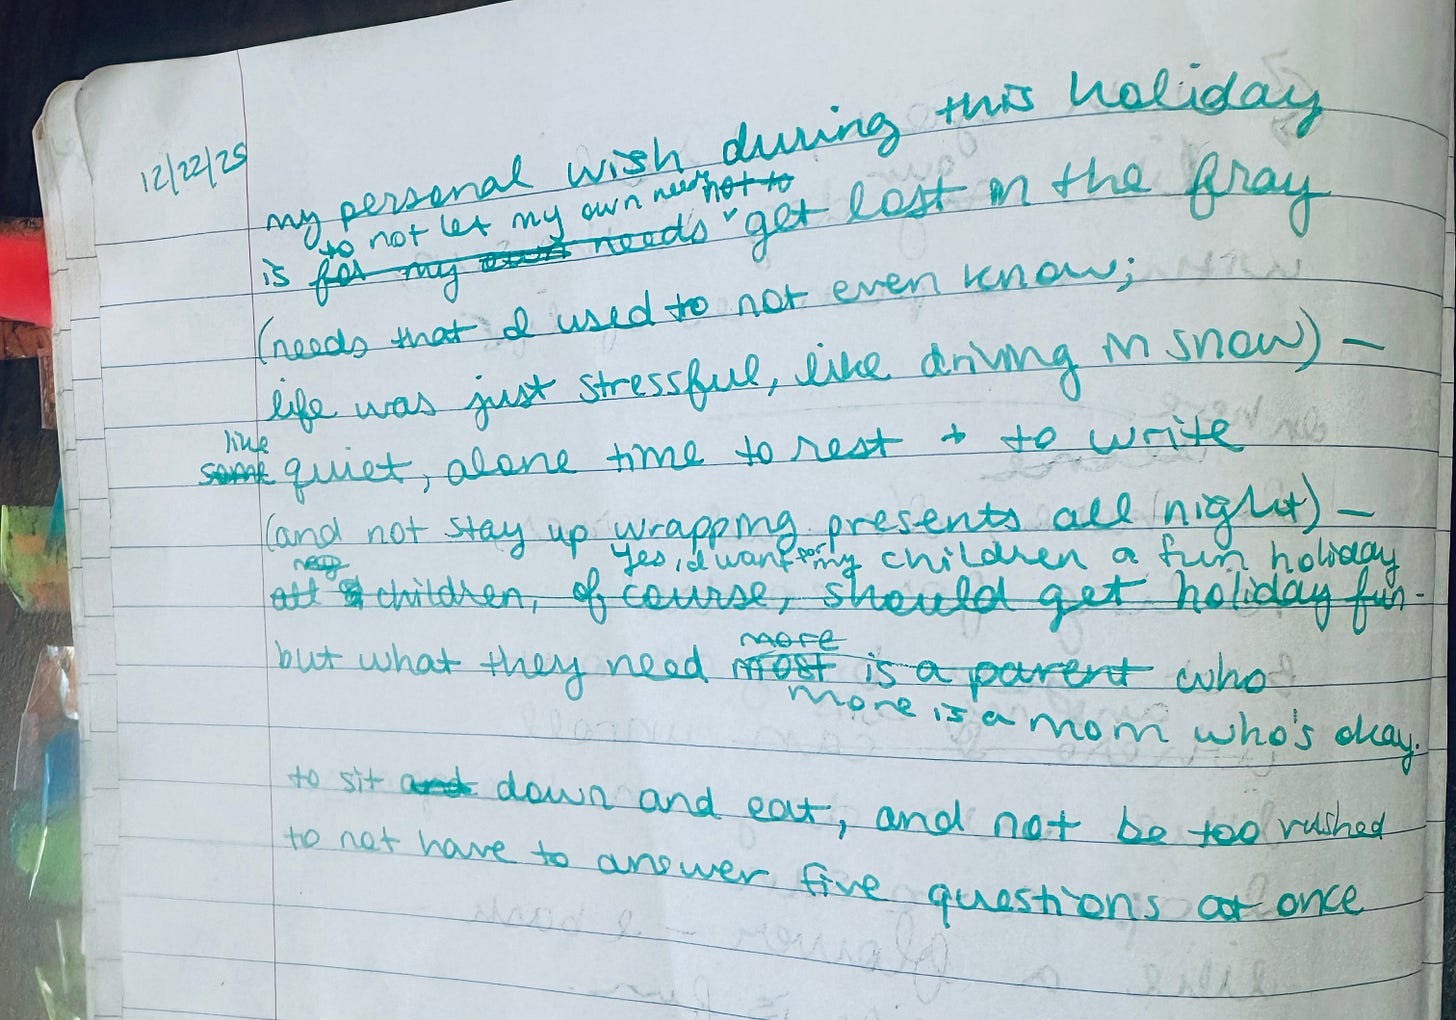 12/22/25
my personal wish during this holiday
to not let my own needs not to
is for my own needs get lost in the fray
(needs that I used to not even know;
life was just stressful, like driving in snow) —
like
some quiet, alone time to rest + to write
(and not stay up wrapping presents all night) —
Yes, I want for my children a fun holiday
all children, of course, should get holiday fun.
more
but what they need most is a parent who
more is a mom who's okay.
to sit and down and eat, and not be too rushed
to not have to answer five questions at once